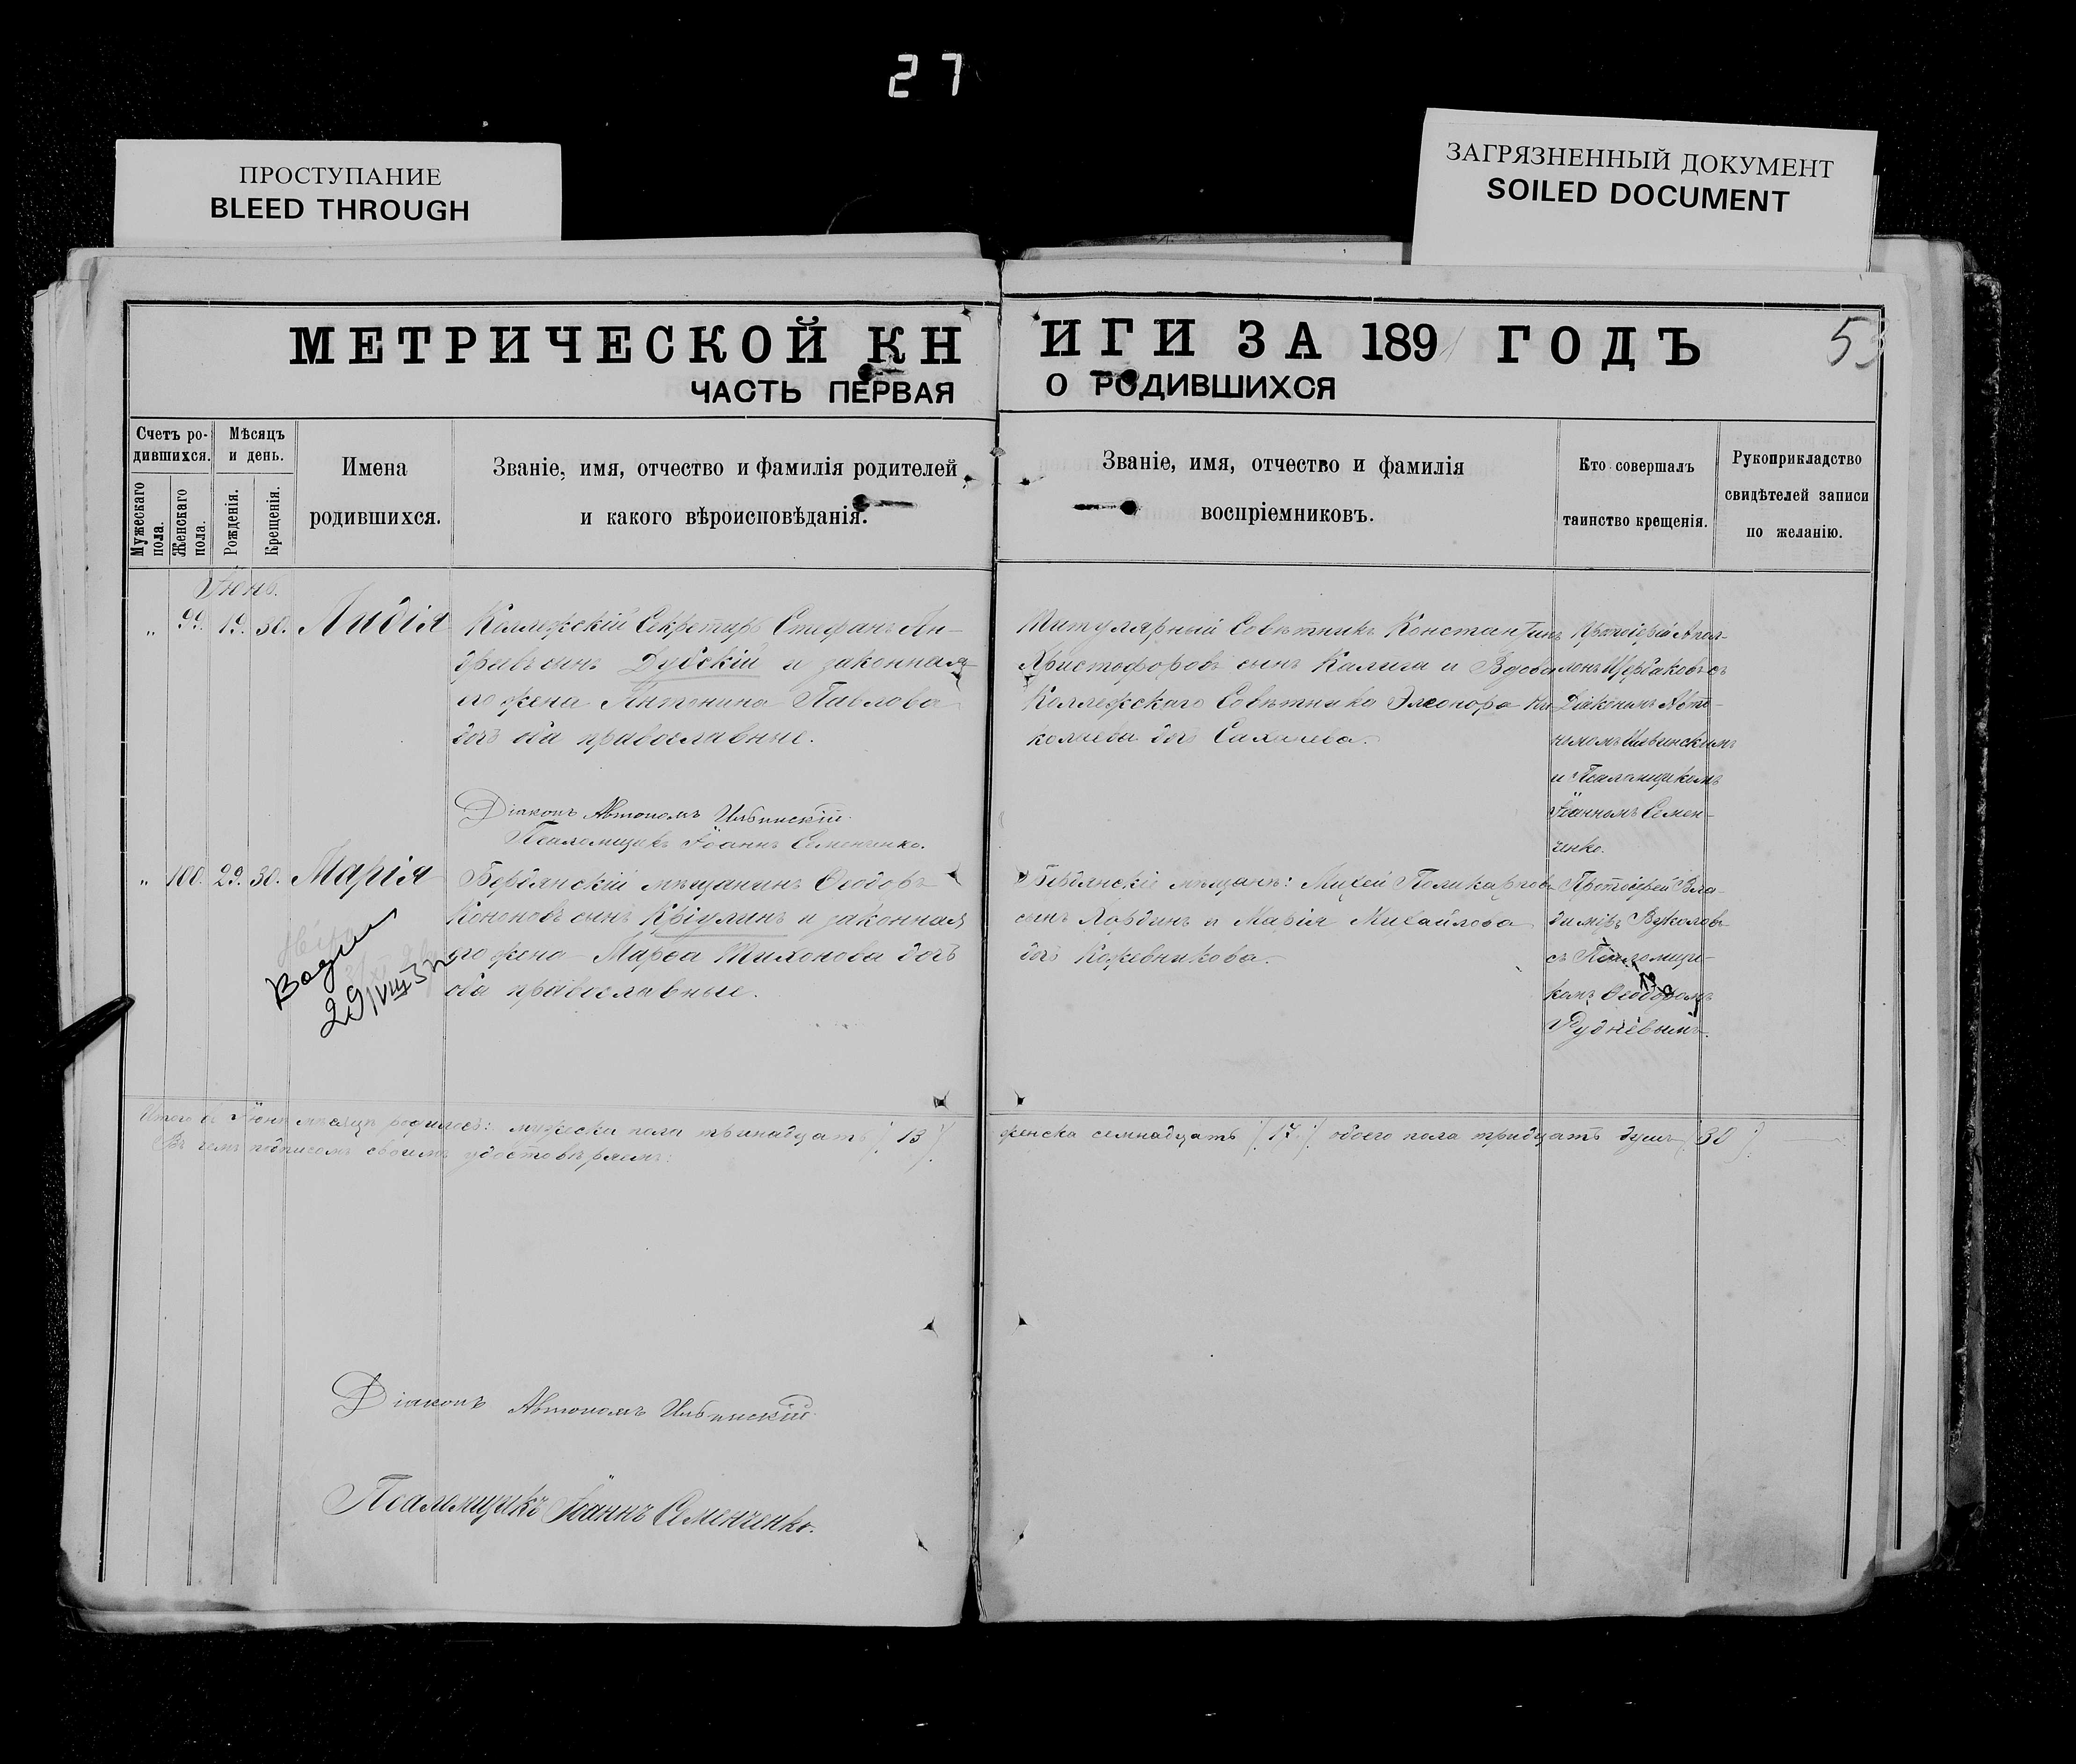 27
ПРОСТУПАНИЕ
BLEED THROUGH
ЗАГРЯЗНЕННЫЙ ДОКУМЕНТ
SOILED DOCUMENT
МЕТРИЧЕСКОЙ КНИГИ ЗА 1891 ГОДЪ
53
ЧАСТЬ ПЕРВАЯ О РОДИВШИХСЯ
Счетъ родившихся.
Мужескаго пола.
Женскаго пола.
Мѣсяцъ и день.
Рожденія.
Крещенія.
Имена
родившихся.
Званіе, имя, отчество и фамилія родителей
и какого вѣроисповѣданія.
Званіе, имя, отчество и фамилія
воспріемниковъ.
Кто совершалъ
таинство крещенія.
Рукоприкладство
свидѣтелей записи
по желанію.
Іюнь.
„ 99. 19. 30. Лидія
Коллежскій Секретарь Стефанъ Ан-
дреевъ сынъ Дубскій и законная
его жена Антонина Павлова
дочь оба православные.
Діаконъ Автономъ Ильинскій.
Псаломщикъ Іоаннъ Семенченко.
Титулярный Совѣтникъ Константинъ
Христофоровъ сынъ Калига и Вдова
Коллежскаго Совѣтника Элеонора Ни-
колаева дочь
Протоіерей Апол-
лонъ Щербаковъ съ
Діакономъ Авто-
номомъ Ильинскимъ
и Псаломщикомъ
Іоанномъ Семен-
ченко.
„ 100. 29. 30. Марія
Бердянскій мѣщанинъ Ѳеодоръ
Кононовъ сынъ Кріулинъ и законная
его жена Марѳа Тихонова дочь
оба православные.
29/VIII
Бердянскіе мѣщане: Михей Поликарповъ
сынъ Лардинъ и Марія Михайлова
дочь Кожевникова.
Протоіерей Вла-
димиръ
съ Псаломщи-
комъ Ѳеодоромъ
Рудневымъ.
Итого въ Іюнѣ мѣсяцѣ родилось: мужеска пола тринадцать (13) женска семнадцать (17) обоего пола тридцать душъ (30)
Въ чемъ подписомъ своимъ удостовѣряемъ:
Діаконъ Автономъ Ильинскій.
Псаломщикъ Іоаннъ Семенченко.